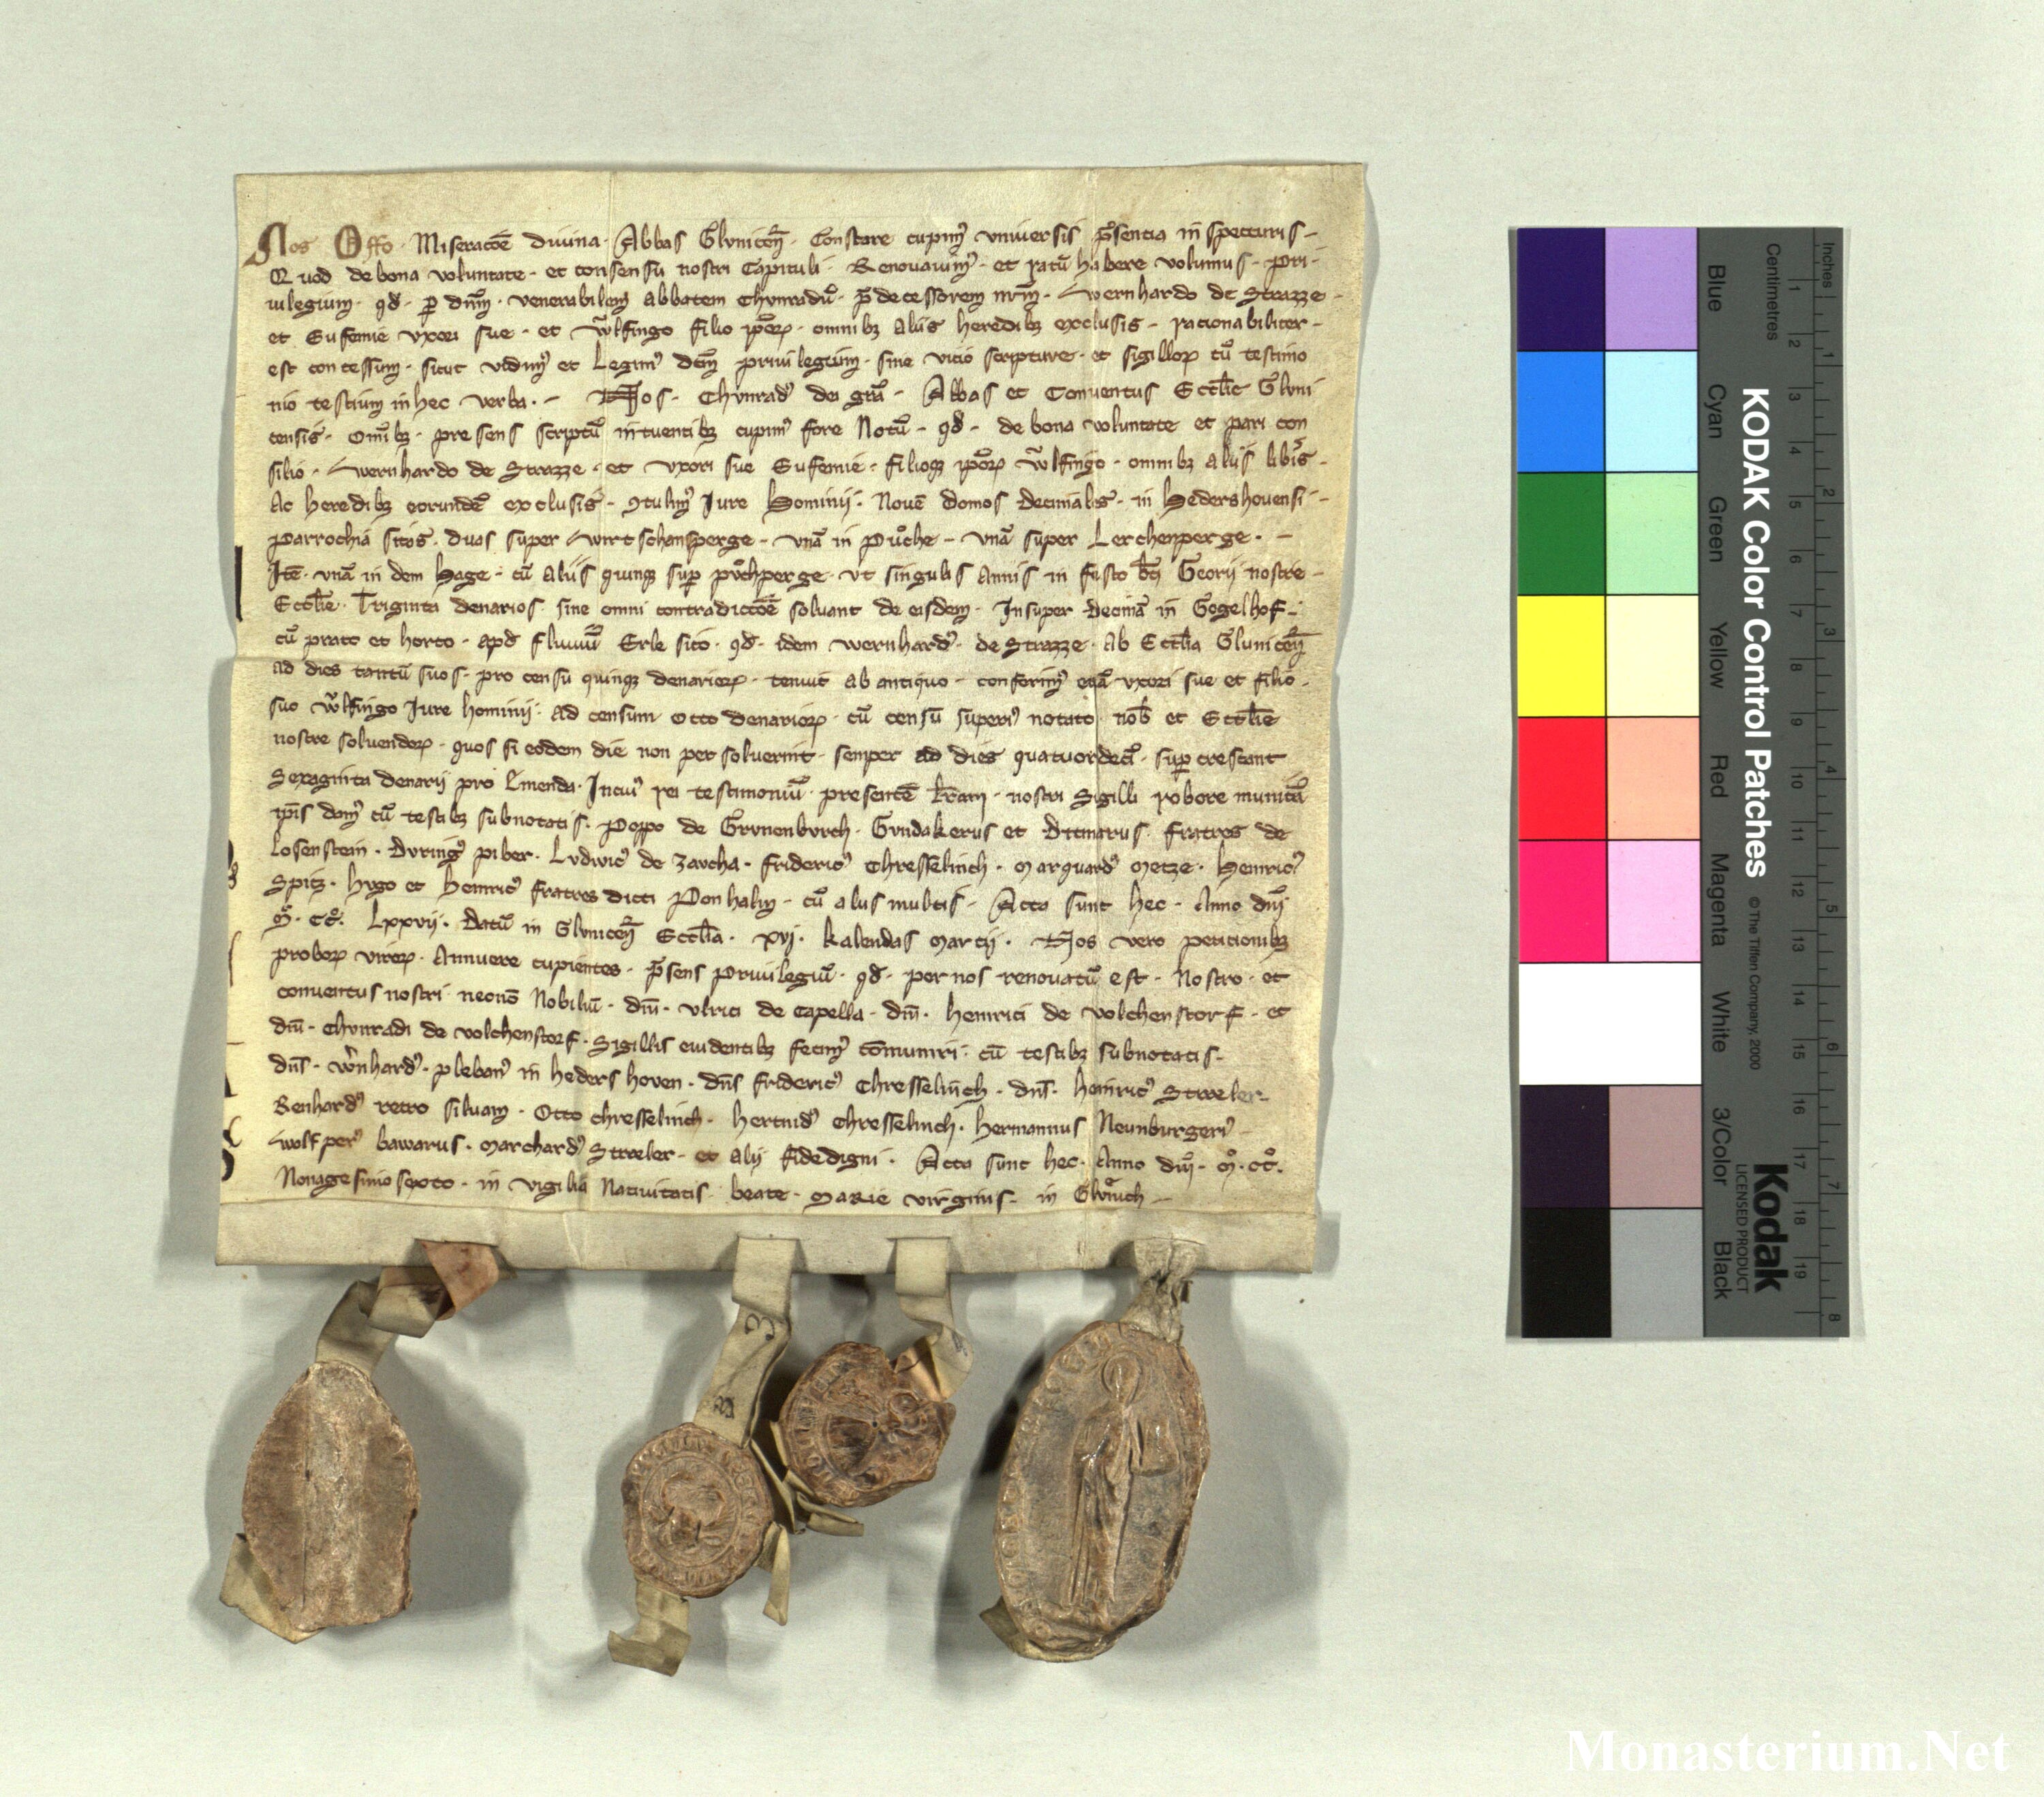 Nos Offo · Miseratōe diuina · Abbas Glunicēn̄ · Constare cupim9 vniuersis p̄sencia in specturis –
Quod de bona voluntate · et consensu nostri Capituli · Renouauim9 · et ratū habere volumus · pri-
uilegium · qd̄ · p̱ dn̄m · venerabilem abbatem Chvnradū · p̄decessorem nr̄m · Wernhardo de Strazze –
et Eufemie vxori sue · et Wͦlfingo filio ip̄oꝝ · omnibꝫ aliis heredibꝫ exclusis – racionabiliter –
est concessum · sicut vidim9 et Legim9 dc̄m priuilegium · sine vicio scripture · et sigilloꝝ cū testimo
nio testium in hec verba · – Nos · Chvnrad9 dei grā · Abbas et Conuentus Eccl̄ie Gluni
censis · om̄ibꝫ · presens scriptū intuentibꝫ cupim9 fore Notū – qd̄ – de bona voluntate et pari con
silio · Wernhardo de Strazze · et vxori sue Eufemie · filioqꝫ ip̄oꝝ Wͦlfingo · omnibꝫ aliis lib̄is –
Ac heredibꝫ eorundē exclusis – 9tulim9 Iure Hominij · Nouē domos decimales · in Hedershouensi –
parrochia sitos · duas super Wirtschansperge – vnā in Půche – vnā super Lerchenperge · –
Itē · vnā in dem Hage · cū aliis quinqꝫ sup̱ půchperge · vt singulis Annis in festo bt̄i Georij nostre –
Eccl̄ie · Triginta denarios · sine omni contradictōe soluant de eisdem · Insuper decimā in Gogelhof –
cū prato et horto · apd̄ fluuiū Erle sito · qd̄ · idem wernhard9 · de Strazze · ab Eccl̄ia Glunicēn̄
ad dies tantū suos · pro censu quinqꝫ denarioꝝ · tenuit ab antiquo – conferim9 eciā vxori sue et filio –
suo Wͦlfingo Iure hominij · ad censum octo denarioꝝ · cū censu superi9 notato · nob̄ et Eccl̄ie
nostre soluendoꝝ · quos si eodem die non persoluerint · semper ad dies quatuordecī · sup̱ crescant
Sexaginta denarij pro Emenda · In cui9 rei testimoniū · presentē lr̄am · nostri Sigilli robore munitā
ip̄is dam9 cū testibꝫ subnotatis · Poppo de Grvnenbvrch · Gvndakerus et Ditmarus · fratres de
Losenstein · Dvring9 piber · Lvdwic9 de Zavcha · frideric9 Chresselinch · Marquard9 Metze · Heinric9
Spitz · Hvgo et Heinric9 fratres dicti Ponhalm – cū aliis multis – Acta sunt hec · Anno dn̄i
M̊ · CC̊ · Lxxvij · Datū in Glunicēn̄ Eccl̄ia · xvj · Kalendas Marcij · Nos vero peticionibꝫ
proboꝝ viroꝝ · Annuere cupientes · p̄sens Priuilegiū · qd̄ · per nos renouatū est · Nostro · et
conuentus nostri necnō Nobiliū · dn̄i · Vlrici de Capella · dn̄i · Heinrici de Volchenstorf · et
dn̄i · Chvnradi de Volchenstorf · Sigillis euidentibꝫ fecim9 cōmuniri · cū testibꝫ subnotatis ·
dn̄s · Wͦnhard9 · pleban9 in hedershoven · dn̄s frideric9 Chresselinch · dn̄s · Heinric9 Straeler ·
Renhard9 retro siluam · Otto chresselinch · hertnid9 Chresselinch · Hermannus Neunburgeri9 –
Wolfper9 bawarus · Marchard9 Straeler – et alij fidedigni · Acta sunt hec · Anno dn̄i · M̊ · CC̊ ·
Nonagesimo sexto · in vigilia Natiuitatis beate · Marie virginis · in Glunich –
KODAK Color Control Patches
© The Tiffen Company, 2000
Kodak
LICENSED PRODUCT
Inches
Centimetres
1 2 3 4 5 6 7 8
1 2 3 4 5 6 7 8 9 10 11 12 13 14 15 16 17 18 19
Blue
Cyan
Green
Yellow
Red
Magenta
White
3/Color
Black
Monasterium.Net